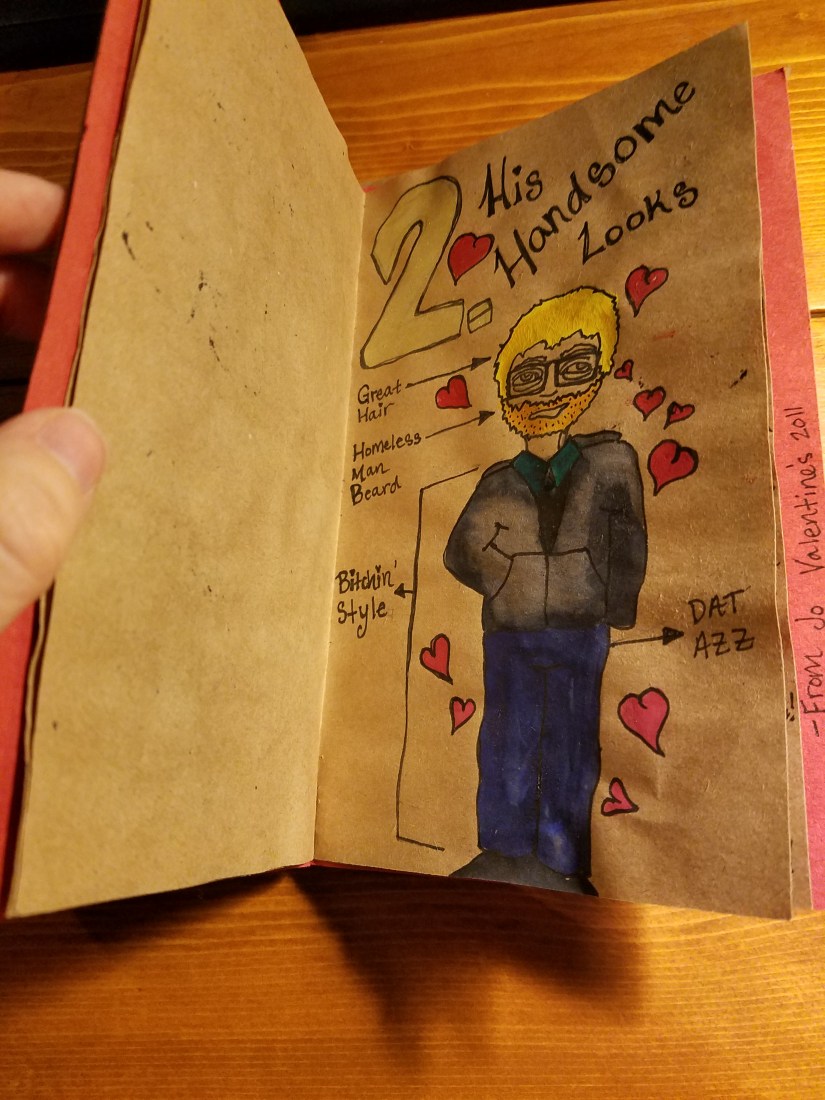 2.
His
Handsome
Looks
Great
Hair
Homeless
Man
Beard
Bitchin'
Style
DAT
AZZ
-From Jo Valentine's 2011